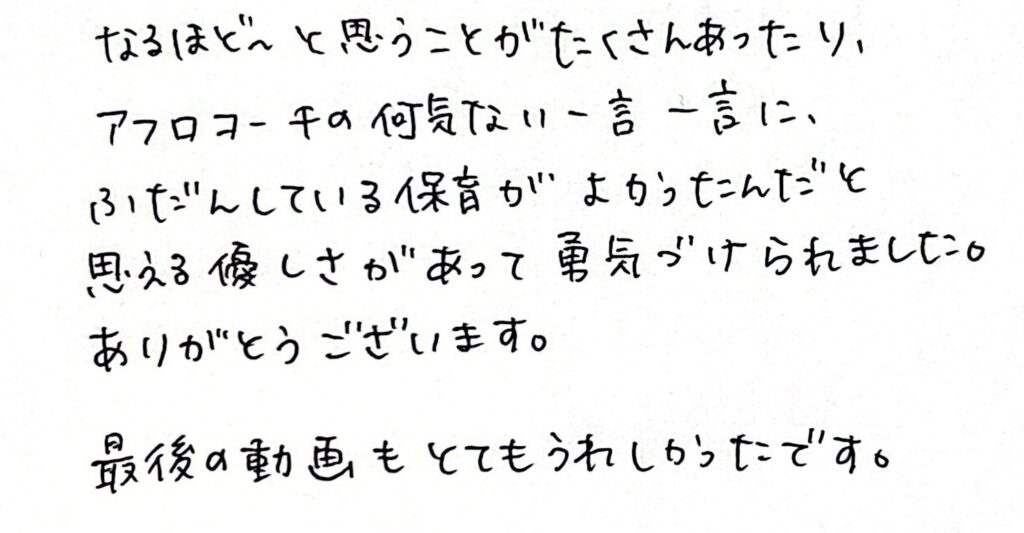 なるほど〜と思うことがたくさんあったり、
アフロコーチの何気ない一言一言に、
ふだんしている保育がよかったんだと
思える優しさがあって勇気づけられました。
ありがとうございます。
最後の動画もとてもうれしかったです。